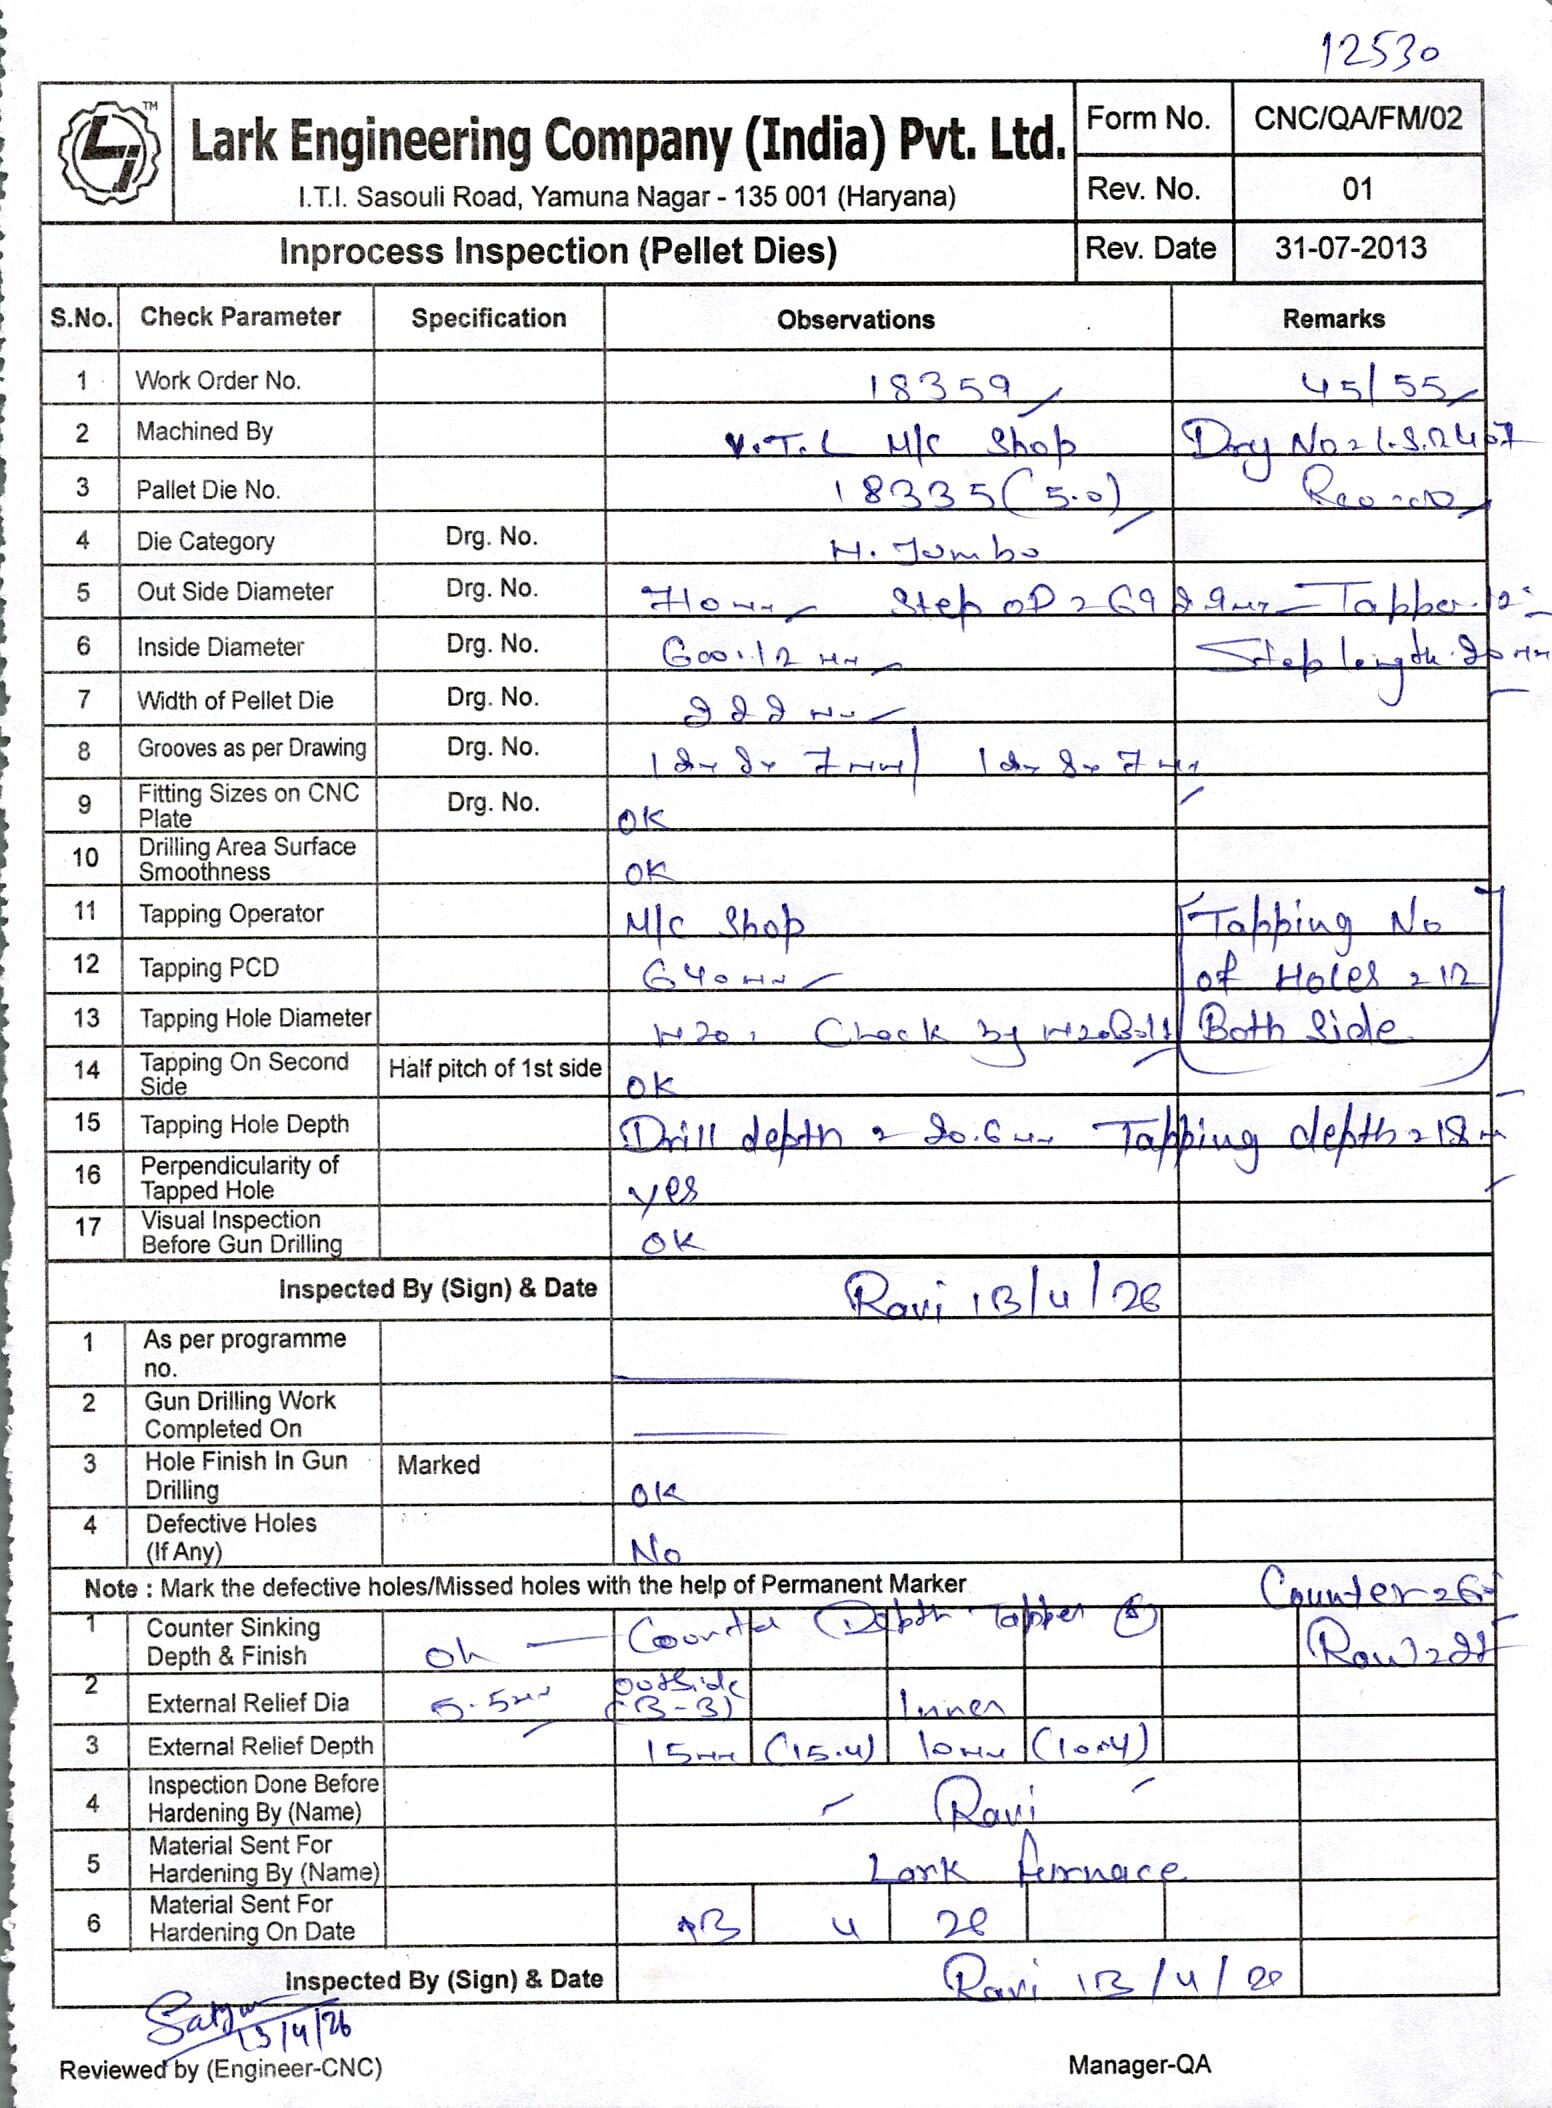 12530
TM
Lark Engineering Company (India) Pvt. Ltd.
I.T.I. Sasouli Road, Yamuna Nagar - 135 001 (Haryana)
Form No. CNC/QA/FM/02
Rev. No. 01
Inprocess Inspection (Pellet Dies) Rev. Date 31-07-2013
S.No. Check Parameter Specification Observations Remarks
1 Work Order No. 18359 45/55
2 Machined By V.T.L M/C Shop Drg No
3 Pallet Die No. 18335 (5.0)
4 Die Category Drg. No. H. Jumbo
5 Out Side Diameter Drg. No. 710 mm Step OD = Tapper
6 Inside Diameter Drg. No. 600.12 mm Step length 20 mm
7 Width of Pellet Die Drg. No. 222 mm
8 Grooves as per Drawing Drg. No.
9 Fitting Sizes on CNC Plate Drg. No. OK
10 Drilling Area Surface Smoothness OK
11 Tapping Operator M/C Shop Tapping No
12 Tapping PCD 640 mm of Holes = 12
13 Tapping Hole Diameter M20, Check by M20 Bolt Both Side
14 Tapping On Second Side Half pitch of 1st side OK
15 Tapping Hole Depth Drill depth = 20.6 mm Tapping depth = 18 mm
16 Perpendicularity of Tapped Hole yes
17 Visual Inspection Before Gun Drilling OK
Inspected By (Sign) & Date Ravi 13/4/26
1 As per programme no.
2 Gun Drilling Work Completed On
3 Hole Finish In Gun Drilling Marked OK
4 Defective Holes (If Any) No
Note : Mark the defective holes/Missed holes with the help of Permanent Marker Counter
1 Counter Sinking Depth & Finish Ok Counter Depth Tapper
2 External Relief Dia 5.5 mm outside (3-3) Inner
3 External Relief Depth 15 mm (15.4) 10 mm (10.4)
4 Inspection Done Before Hardening By (Name) Ravi
5 Material Sent For Hardening By (Name) Lark furnace
6 Material Sent For Hardening On Date 13 4 26
Inspected By (Sign) & Date Ravi 13/4/26
13/4/26
Reviewed by (Engineer-CNC) Manager-QA